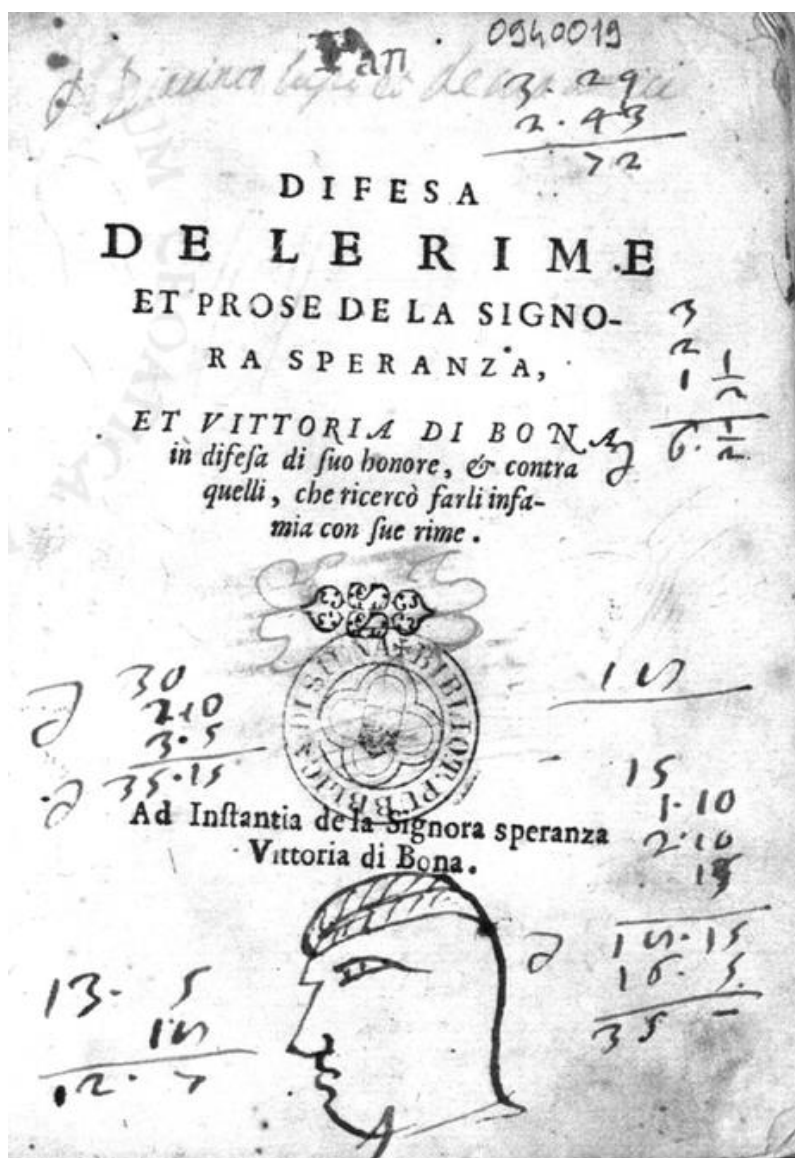 0940019
3. 29
2. 43
72
DIFESA
DE LE RIME
ET PROSE DE LA SIGNO-
RA SPERANZA,
ET VITTORIA DI BONA
in difeſa di ſuo honore, & contra
quelli, che ricercò farli infa-
mia con ſue rime.
3
2
1 1/2
6. 1/2
BIBLIOT. PUBBLICA DI SIENA
30
2 10
3. 5
35. 15
15
1. 10
2. 10
15
Ad Inſtantia de la Signora speranza
Vittoria di Bona.
13. 5
16. 5
35 -